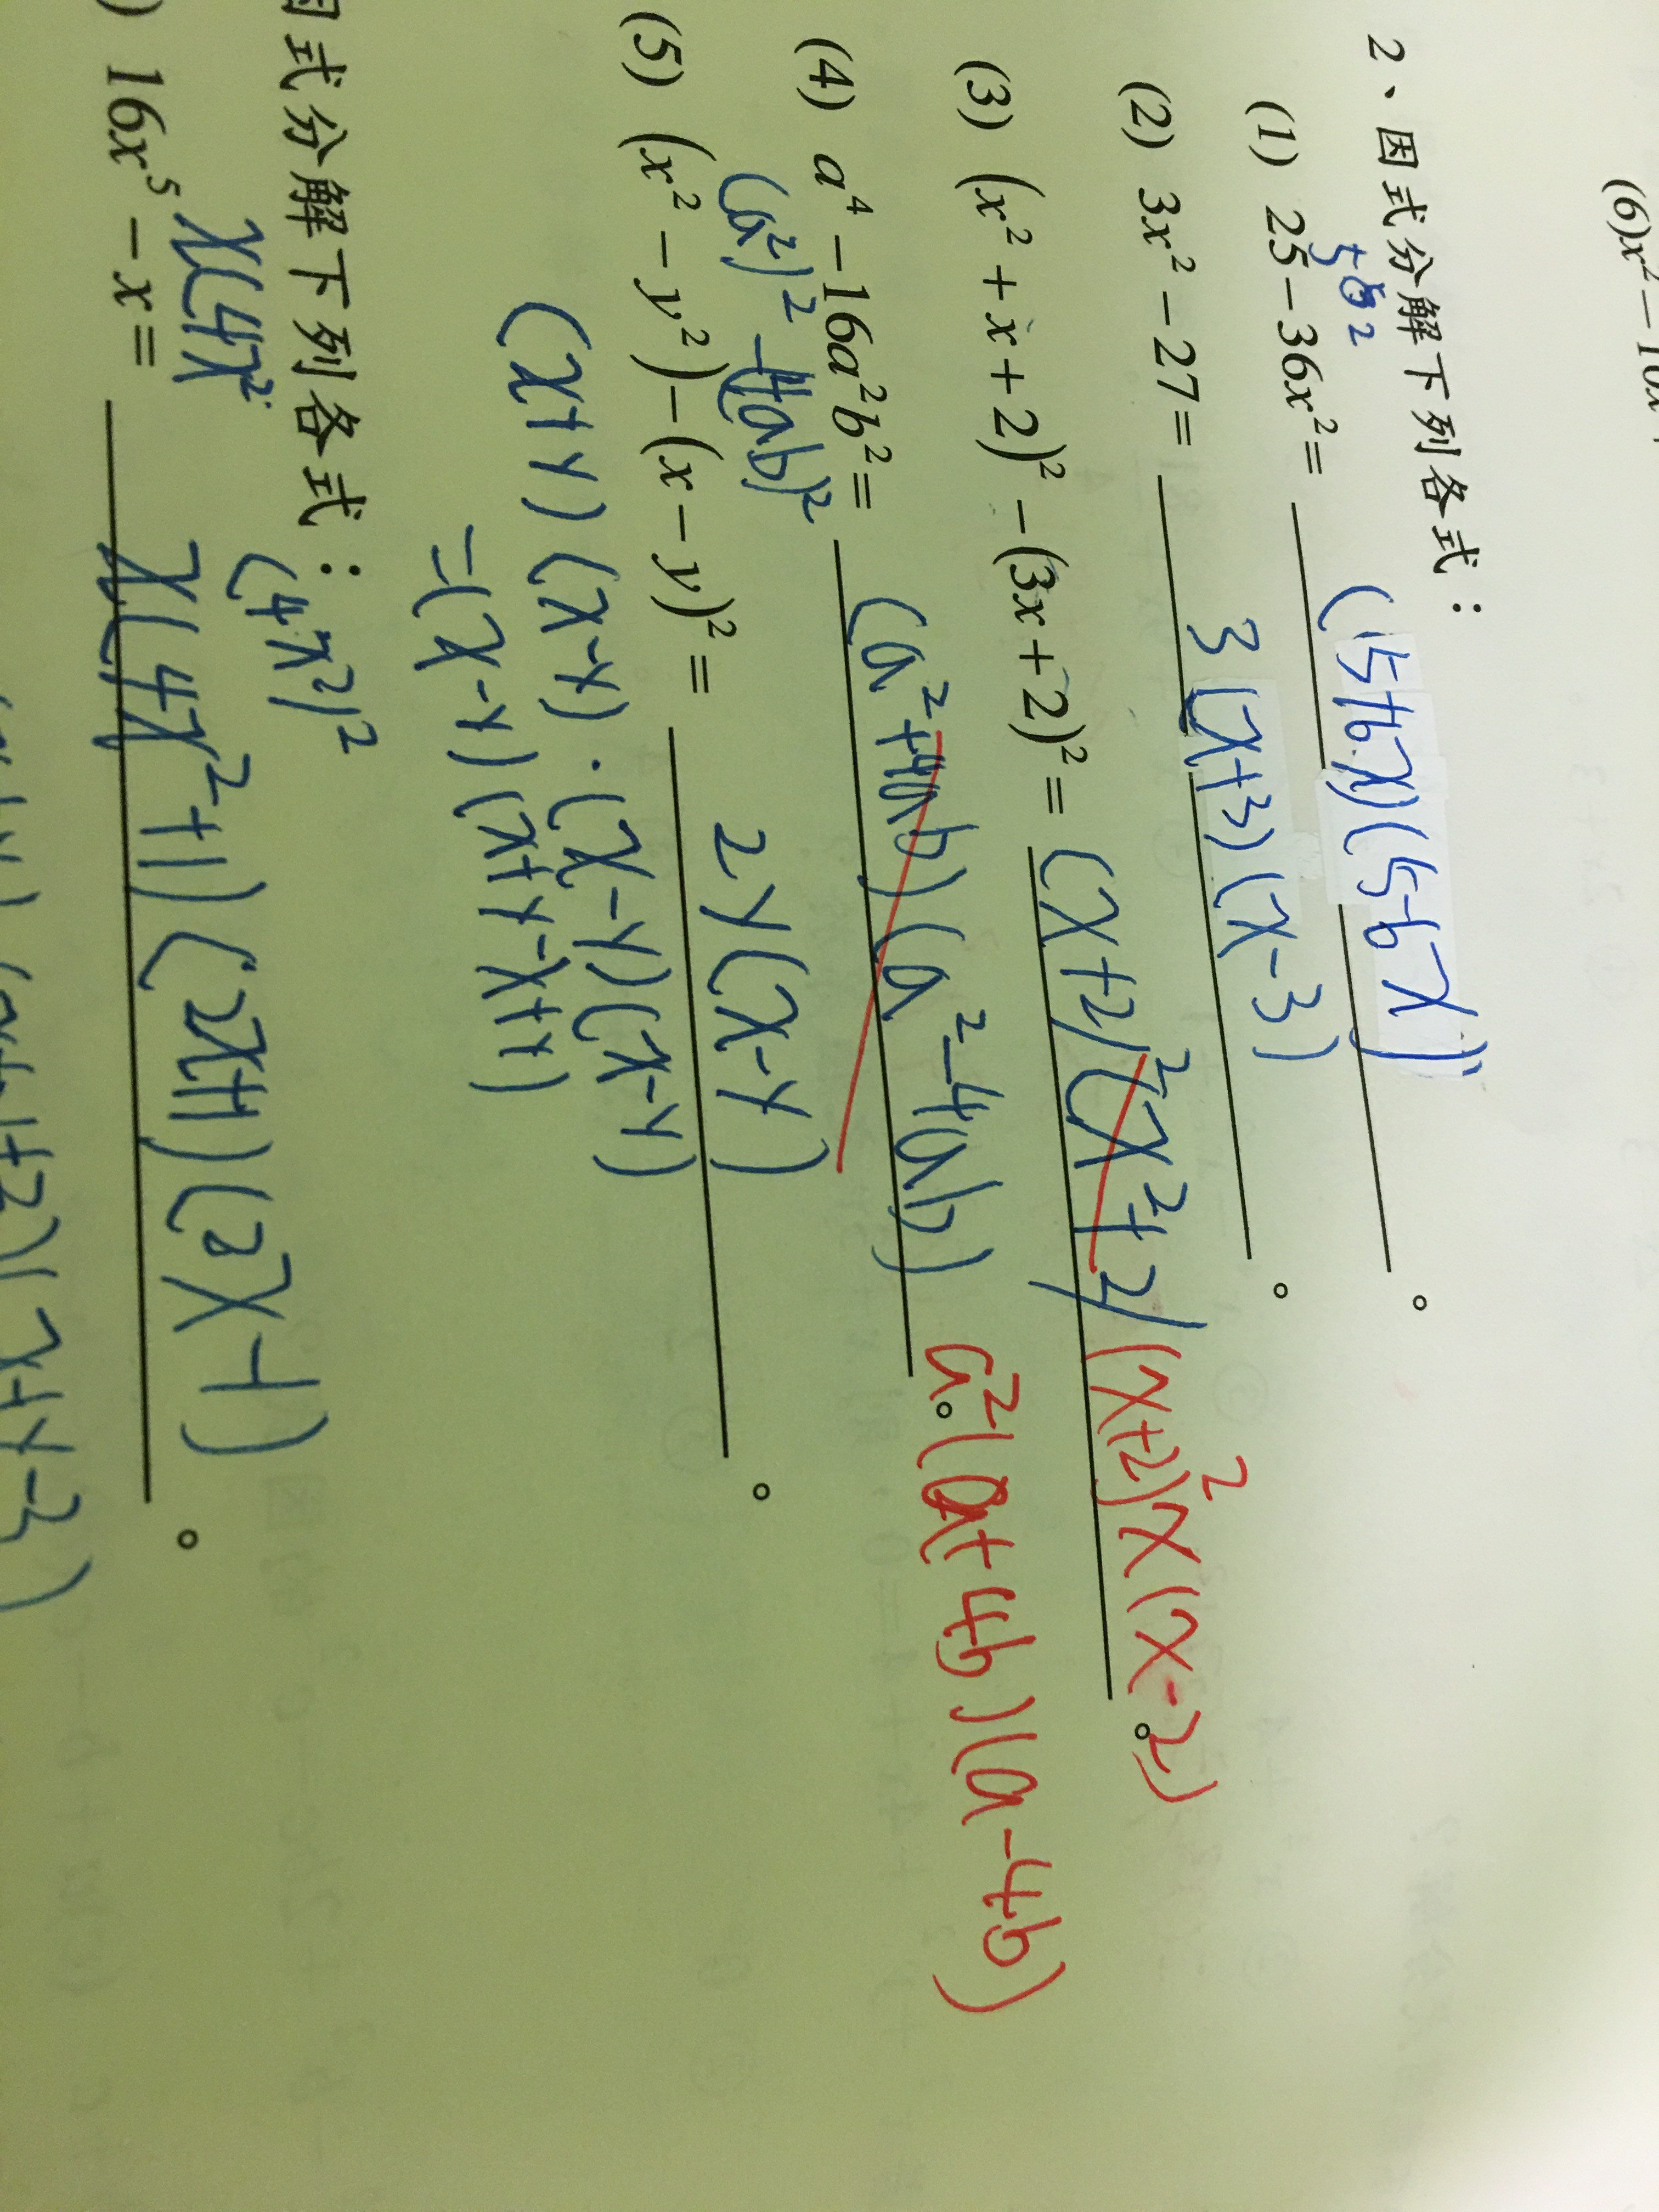 (6)x²－10x
2、因式分解下列各式：
(1) 25－36x²= (5+6x)(5-6x) 。
(2) 3x²－27= 3(x+3)(x-3) 。
(3) (x²＋x＋2)²－(3x＋2)²= (x+2)²(x²+2) (x+2)²x(x-2) 。
(4) a⁴－16a²b²= (a²+4ab)(a²-4ab) 。 a²(a+4b)(a-4b)
(a²)²-(4ab)²
(5) (x²－y²)－(x－y)²= 2y(x-y) 。
(x+y)(x-y)·(x-y)(x-y)
=(x-y)(x+y-x+y)
因式分解下列各式：
(4x²)²
x(4x²
) 16x⁵－x= x(4x²+1)(2x+1)(2x-1) 。